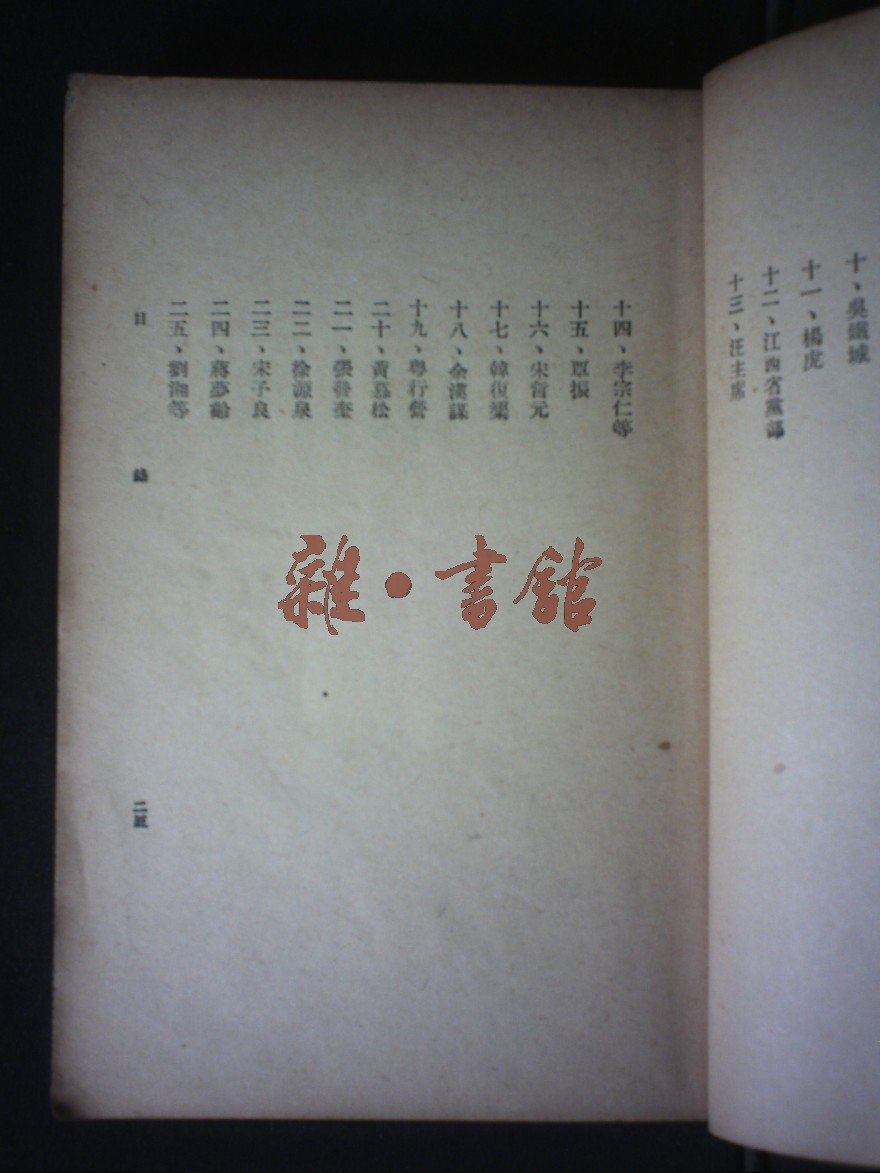 十、吳鐵城
十一、楊虎
十二、江西省黨部
十三、汪主席
十四、李宗仁等
十五、覃振
十六、宋哲元
十七、韓復榘
十八、余漢謀
十九、粵行營
二十、黃慕松
二一、張發奎
二二、徐源泉
二三、宋子良
二四、蔣夢齡
二五、劉湘等
目
錄
二五
雜·書館